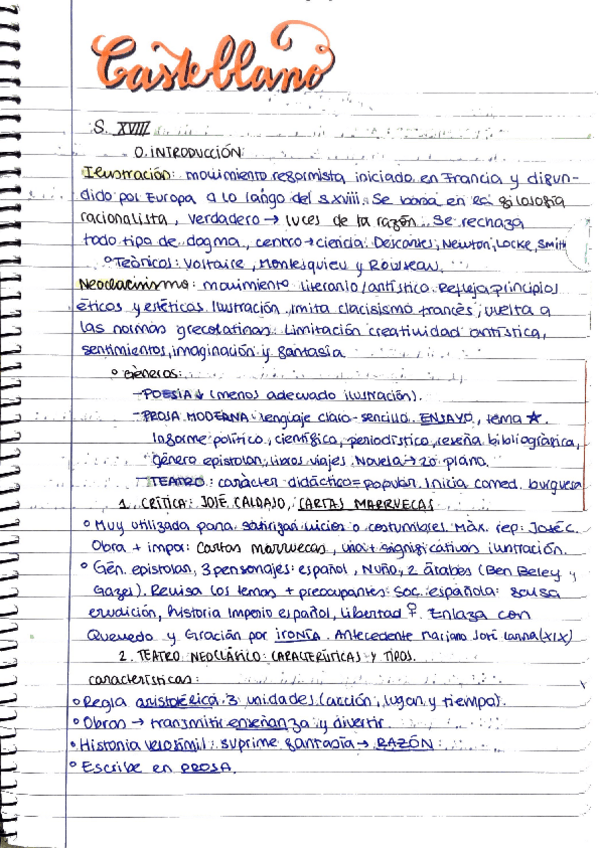 Castellano
S. XVIII
0. INTRODUCCIÓN
Ilustración: movimiento reformista iniciado en Francia y difun-
dido por Europa a lo largo del s.xviii. Se basa en la filosofía
racionalista, verdadero → luces de la razón. Se rechaza
todo tipo de dogma, centro → ciencia. Descartes, Newton, Locke, Smith
° Teóricos: Voltaire, Montesquieu y Rousseau.
Neoclacinismo: movimiento literario/artístico. Refleja principios
éticos y estéticos Ilustración, imita clacisismo francés, vuelta a
las normas grecolatinas. Limitación creatividad artística,
sentimientos, imaginación y fantasía
° Géneros:
- POESÍA ↓ (menos adecuado ilustración).
- PROSA MODERNA: lenguaje claro-sencillo. ENSAYO, tema ★.
Informe político, científico, periodístico, reseña bibliográfica,
género epistolar, libros viajes. Novela → 2º plano.
- TEATRO: carácter didáctico = popular. Inicia comed. burguesa
1. CRÍTICA: JOSÉ CALDAJO, CARTAS MARRUECAS
° Muy utilizada para satirizar vicios o costumbres. Máx. rep: José C.
Obra + impor: Cartas marruecas, una + significativas ilustración.
° Gén. epistolar, 3 personajes: español, Nuño, 2 árabes (Ben Beley y
Gazel). Revisa los temas + preocupantes: Soc. española: falsa
erudición, historia Imperio español, libertad ♀. Enlaza con
Quevedo y Gracián por IRONÍA. Antecedente Mariano José Larra (XIX)
2. TEATRO NEOCLÁSICO: CARACTERÍSTICAS Y TIPOS.
características:
° Regla aristotérica 3 unidades (acción, lugar y tiempo).
° Obras → transmitir enseñanza y divertir
° Historia verosímil: suprime fantasía → RAZÓN
° Escribe en PROSA.